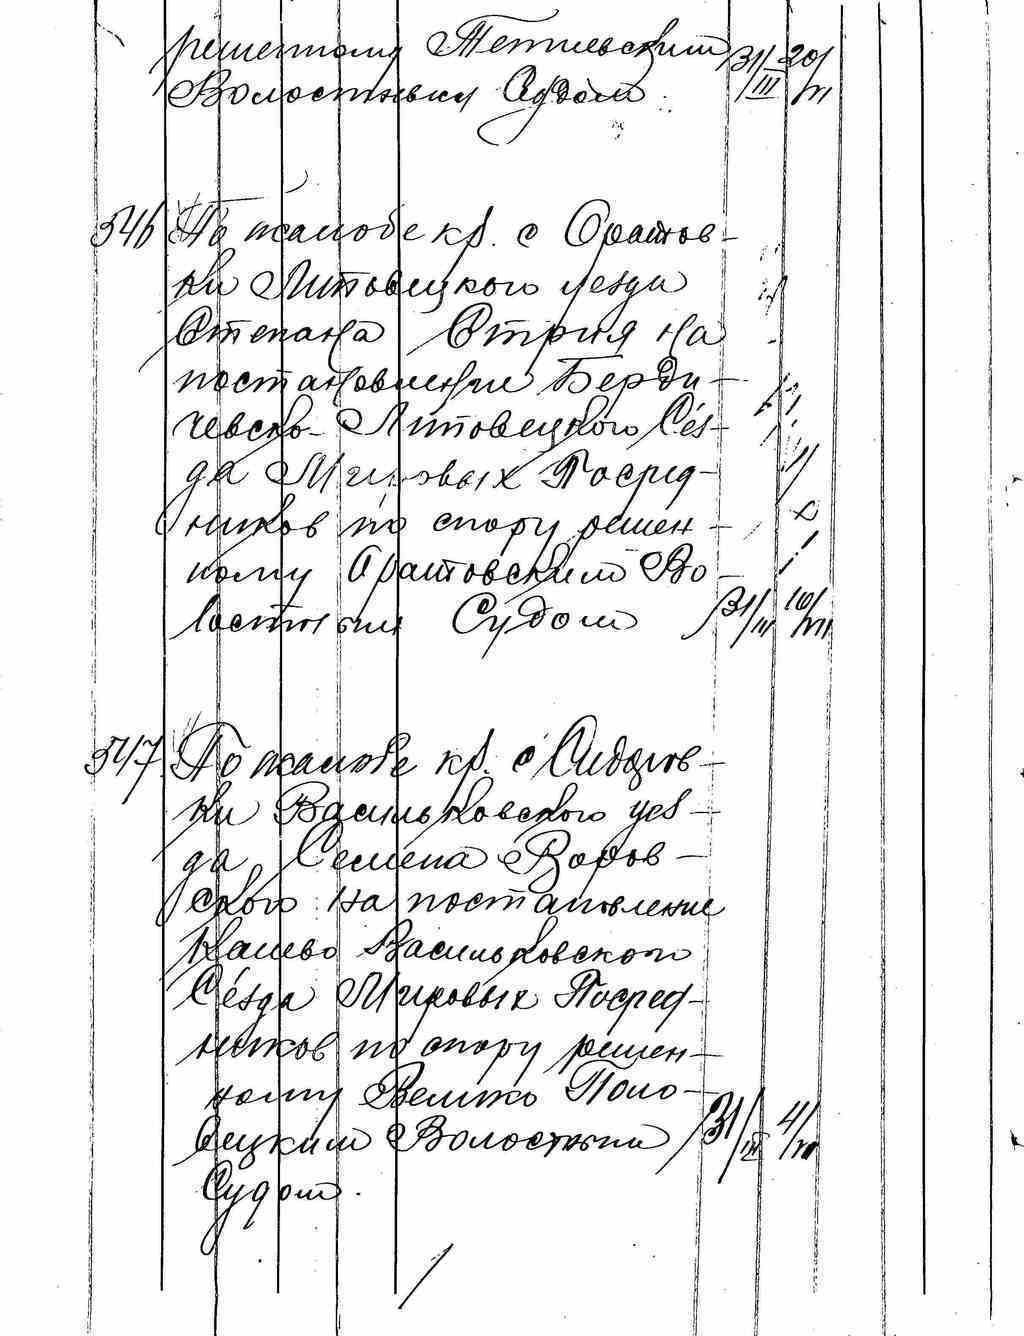 решенному Тетиевским 31/III 20/VI
Волостным Судом.
546 По жалобе кр. с Оратов-
ки Липовецкого уезда
Степана Стрия на
постановление Берди-
чевско-Липовецкого Сез-
да Мировых Посред-
ников по спору решен-
ному Оратовским Во-
лостным Судом 31/III 10/VII
547 По жалобе кр. с Сидоров-
ки Васильковского уез-
да Семена Воров-
ского на постановление
Киево Васильковского
Сезда Мировых Посред-
ников по спору решен-
ному Велико Поло-
вецким Волостным 31/III 4/VII
Судом.